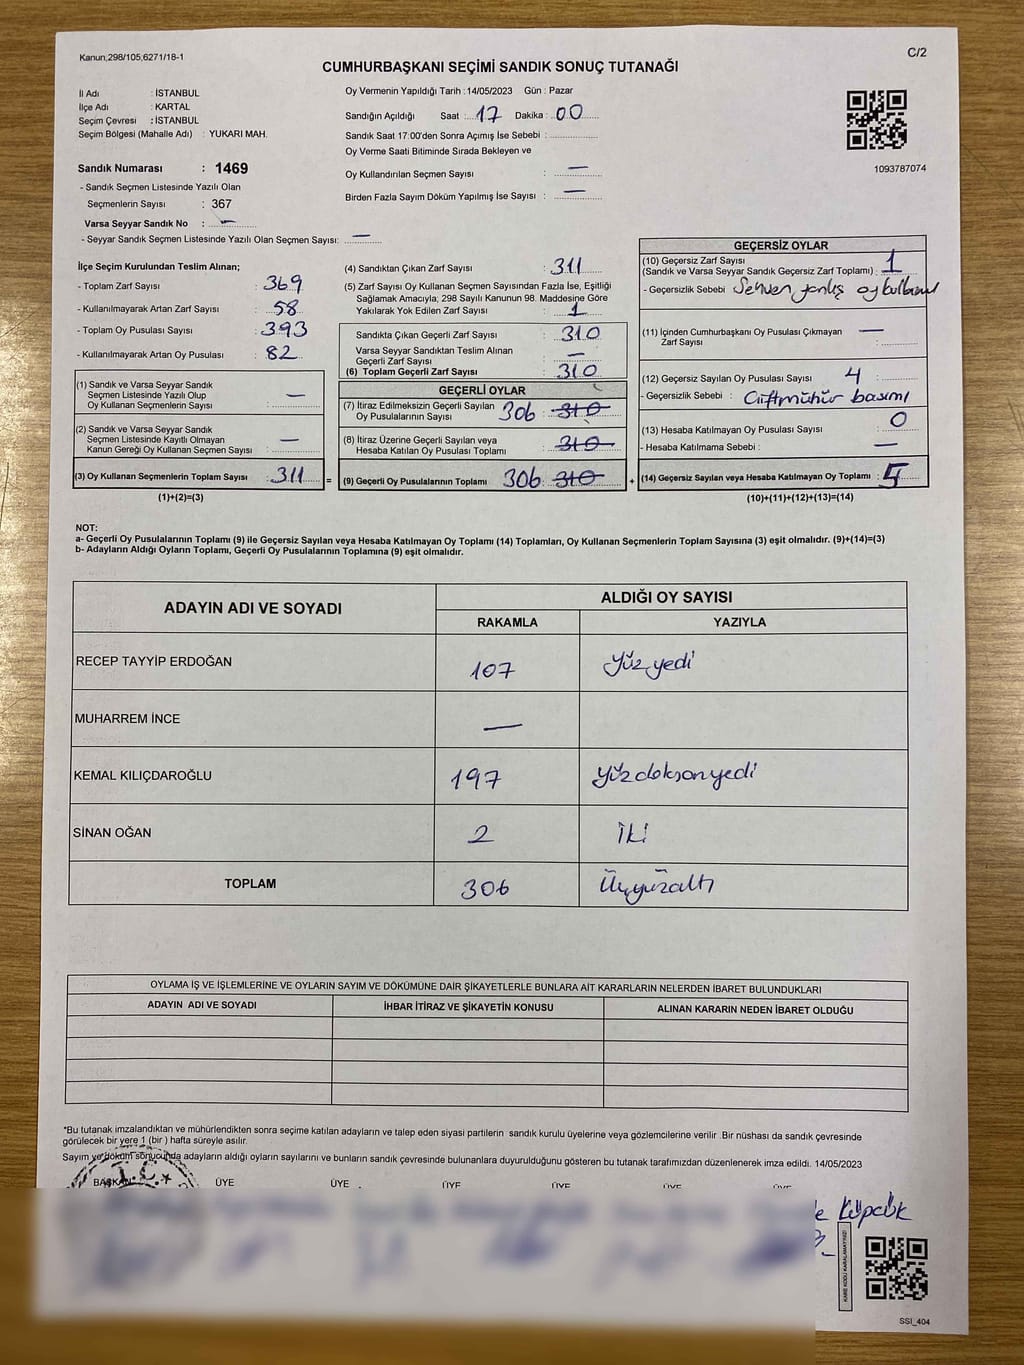 Kanun;298/105;6271/18-1
C/2
CUMHURBAŞKANI SEÇİMİ SANDIK SONUÇ TUTANAĞI
İl Adı : İSTANBUL
İlçe Adı : KARTAL
Seçim Çevresi : İSTANBUL
Seçim Bölgesi (Mahalle Adı) : YUKARI MAH.
Sandık Numarası : 1469
- Sandık Seçmen Listesinde Yazılı Olan
Seçmenlerin Sayısı : 367
Varsa Seyyar Sandık No : —
- Seyyar Sandık Seçmen Listesinde Yazılı Olan Seçmen Sayısı: —
Oy Vermenin Yapıldığı Tarih : 14/05/2023 Gün : Pazar
Sandığın Açıldığı Saat : 17 Dakika : 00
Sandık Saat 17:00'den Sonra Açımış İse Sebebi :
Oy Verme Saati Bitiminde Sırada Bekleyen ve
Oy Kullandırılan Seçmen Sayısı : —
Birden Fazla Sayım Döküm Yapılmış İse Sayısı : —
1093787074
İlçe Seçim Kurulundan Teslim Alınan;
- Toplam Zarf Sayısı : 369
- Kullanılmayarak Artan Zarf Sayısı : 58
- Toplam Oy Pusulası Sayısı : 393
- Kullanılmayarak Artan Oy Pusulası : 82
(1) Sandık ve Varsa Seyyar Sandık
Seçmen Listesinde Yazılı Olup
Oy Kullanan Seçmenlerin Sayısı : —
(2) Sandık ve Varsa Seyyar Sandık
Seçmen Listesinde Kayıtlı Olmayan
Kanun Gereği Oy Kullanan Seçmen Sayısı : —
(3) Oy Kullanan Seçmenlerin Toplam Sayısı : 311 =
(1)+(2)=(3)
(4) Sandıktan Çıkan Zarf Sayısı : 311
(5) Zarf Sayısı Oy Kullanan Seçmen Sayısından Fazla İse, Eşitliği
Sağlamak Amacıyla; 298 Sayılı Kanunun 98. Maddesine Göre
Yakılarak Yok Edilen Zarf Sayısı : 1
Sandıkta Çıkan Geçerli Zarf Sayısı : 310
Varsa Seyyar Sandıktan Teslim Alınan
Geçerli Zarf Sayısı : —
(6) Toplam Geçerli Zarf Sayısı : 310
GEÇERLİ OYLAR
(7) İtiraz Edilmeksizin Geçerli Sayılan
Oy Pusulalarının Sayısı : 306 310
(8) İtiraz Üzerine Geçerli Sayılan veya
Hesaba Katılan Oy Pusulası Toplamı : 310
(9) Geçerli Oy Pusulalarının Toplamı : 306 310 +
GEÇERSİZ OYLAR
(10) Geçersiz Zarf Sayısı
(Sandık ve Varsa Seyyar Sandık Geçersiz Zarf Toplamı) : 1
- Geçersizlik Sebebi : Sehven yanlış oy kullanımı
(11) İçinden Cumhurbaşkanı Oy Pusulası Çıkmayan
Zarf Sayısı : —
(12) Geçersiz Sayılan Oy Pusulası Sayısı : 4
- Geçersizlik Sebebi : Çiftmühür basımı
(13) Hesaba Katılmayan Oy Pusulası Sayısı : 0
- Hesaba Katılmama Sebebi : —
(14) Geçersiz Sayılan veya Hesaba Katılmayan Oy Toplamı : 5
(10)+(11)+(12)+(13)=(14)
NOT:
a- Geçerli Oy Pusulalarının Toplamı (9) ile Geçersiz Sayılan veya Hesaba Katılmayan Oy Toplamı (14) Toplamları, Oy Kullanan Seçmenlerin Toplam Sayısına (3) eşit olmalıdır. (9)+(14)=(3)
b- Adayların Aldığı Oyların Toplamı, Geçerli Oy Pusulalarının Toplamına (9) eşit olmalıdır.
ADAYIN ADI VE SOYADI ALDIĞI OY SAYISI
RAKAMLA YAZIYLA
RECEP TAYYİP ERDOĞAN 107 Yüz yedi
MUHARREM İNCE —
KEMAL KILIÇDAROĞLU 197 Yüzdoksanyedi
SİNAN OĞAN 2 İki
TOPLAM 306 Üçyüzaltı
OYLAMA İŞ VE İŞLEMLERİNE VE OYLARIN SAYIM VE DÖKÜMÜNE DAİR ŞİKAYETLERLE BUNLARA AİT KARARLARIN NELERDEN İBARET BULUNDUKLARI
ADAYIN ADI VE SOYADI İHBAR İTİRAZ VE ŞİKAYETİN KONUSU ALINAN KARARIN NEDEN İBARET OLDUĞU
*Bu tutanak imzalandıktan ve mühürlendikten sonra seçime katılan adayların ve talep eden siyasi partilerin sandık kurulu üyelerine veya gözlemcilerine verilir .Bir nüshası da sandık çevresinde
görülecek bir yere 1 (bir ) hafta süreyle asılır.
Sayım ve döküm sonucunda adayların aldığı oyların sayılarını ve bunların sandık çevresinde bulunanlara duyurulduğunu gösteren bu tutanak tarafımızdan düzenlenerek imza edildi. 14/05/2023
T.C.
BAŞKAN ÜYE ÜYE ÜYE ÜYE ÜYE ÜYE
Küpcük
KARE KODU KARALAMAYINIZ!
SSI_404